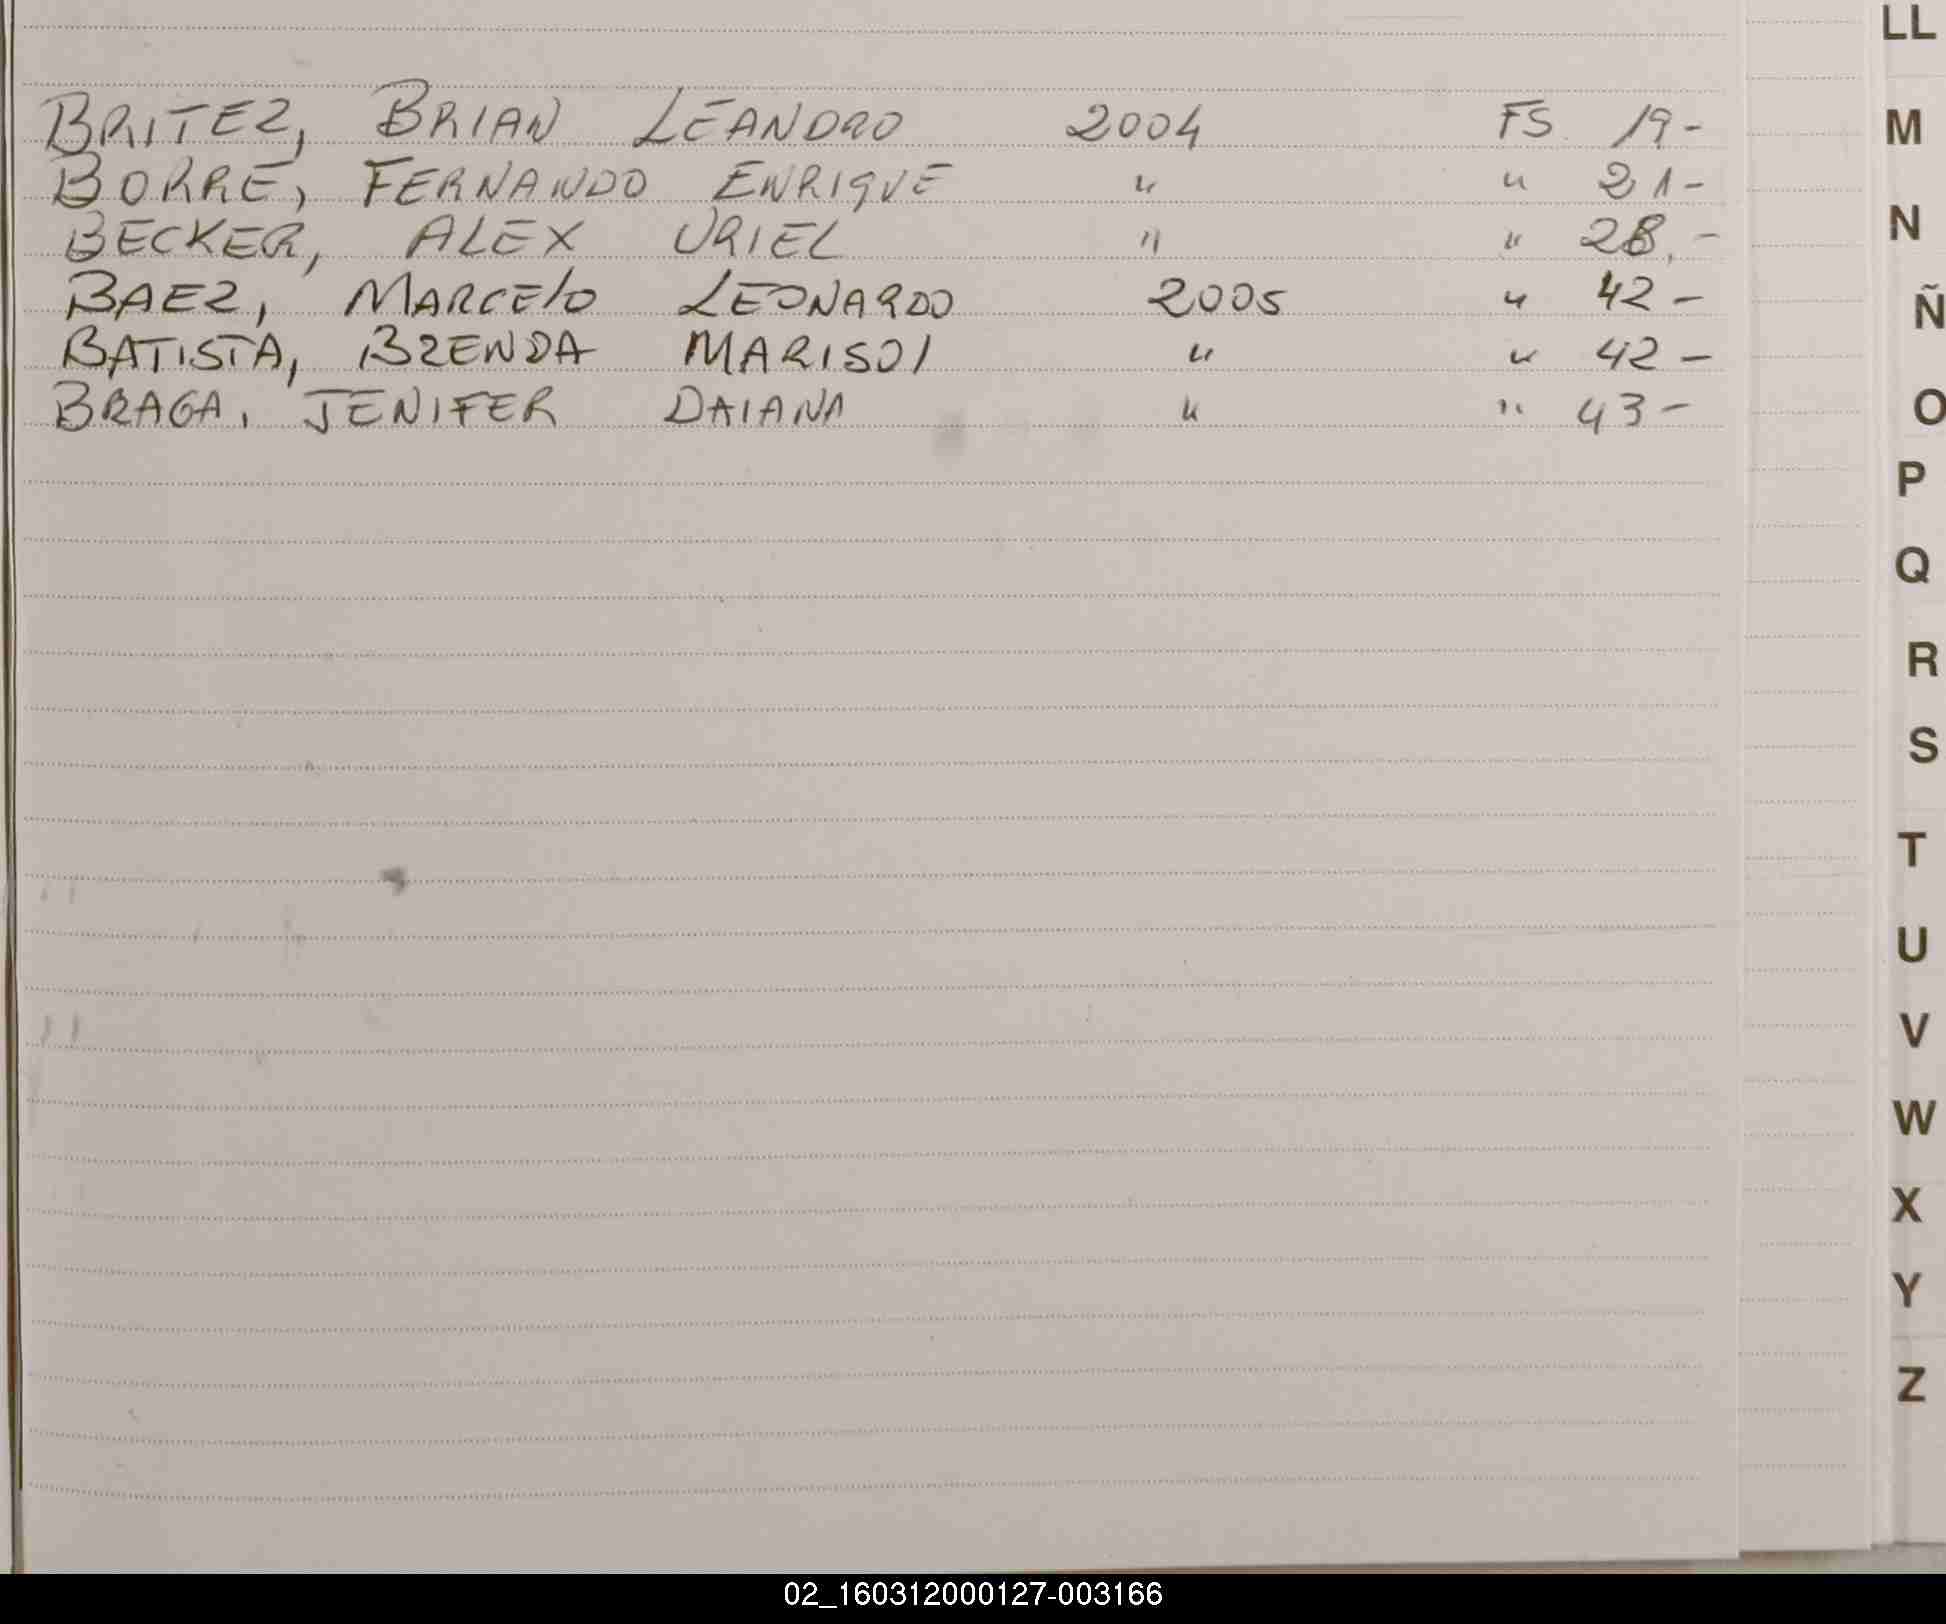 BRITEZ, BRIAN LEANDRO 2004 FS. 19-
BORRE, FERNANDO ENRIQUE " " 21-
BECKER, ALEX URIEL " " 28.-
BAEZ, MARCElO LEONARDO 2005 " 42-
BATISTA, BRENDA MARISOl " " 42-
BRAGA, JENIFER DAIANA " " 43-
LL
M
N
Ñ
O
P
Q
R
S
T
U
V
W
X
Y
Z
02_160312000127-003166